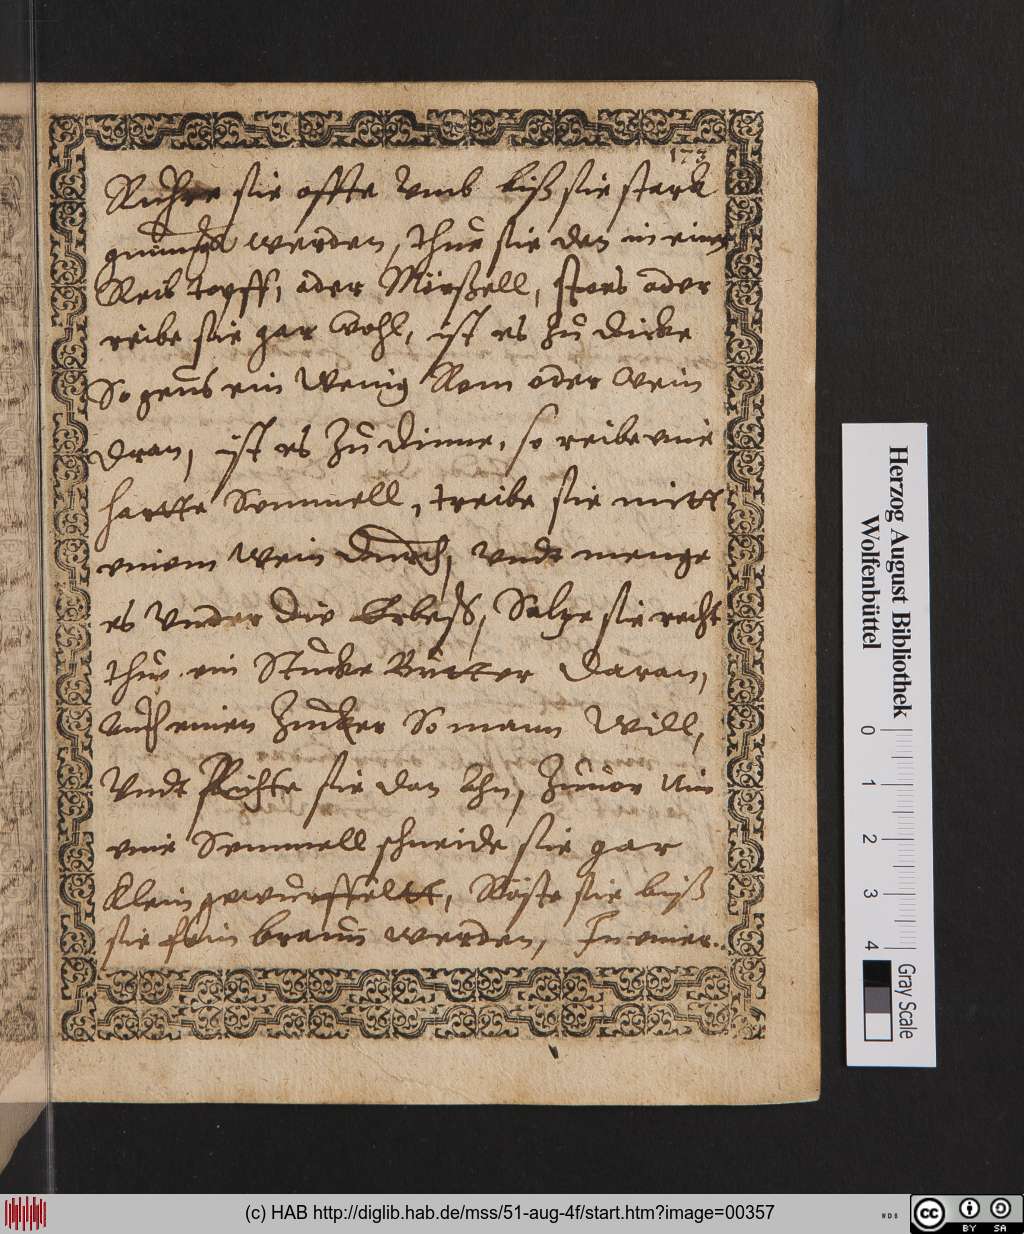 173
Ruhre sie offte Vmb biß sie starck
genungk werden, thue sie den in einen
Reib topff, oder Mörßell, stoes oder
reibe sie gar wohl, ist es zu dicke
So geus ein Wenig Rom oder Wein
dran, ist es zu dinne, so reibe eine
hartte Semmell, treibe sie mitt
einem Wein durch, Vndt menge
es Vnder die Erbeß, Saltze sie recht
thue ein Stucke Butter daran,
auch einen Zucker So mann Will,
Vndt Richte sie dan ahn, Zuuor Nim
eine Semmell schneide sie gar
klein gewurffeltt, Röste sie biß
sie fein braun werden, In einer
Herzog August Bibliothek
Wolfenbüttel
0 1 2 3 4
Gray Scale
(c) HAB http://diglib.hab.de/mss/51-aug-4f/start.htm?image=00357
WDB
cc BY SA